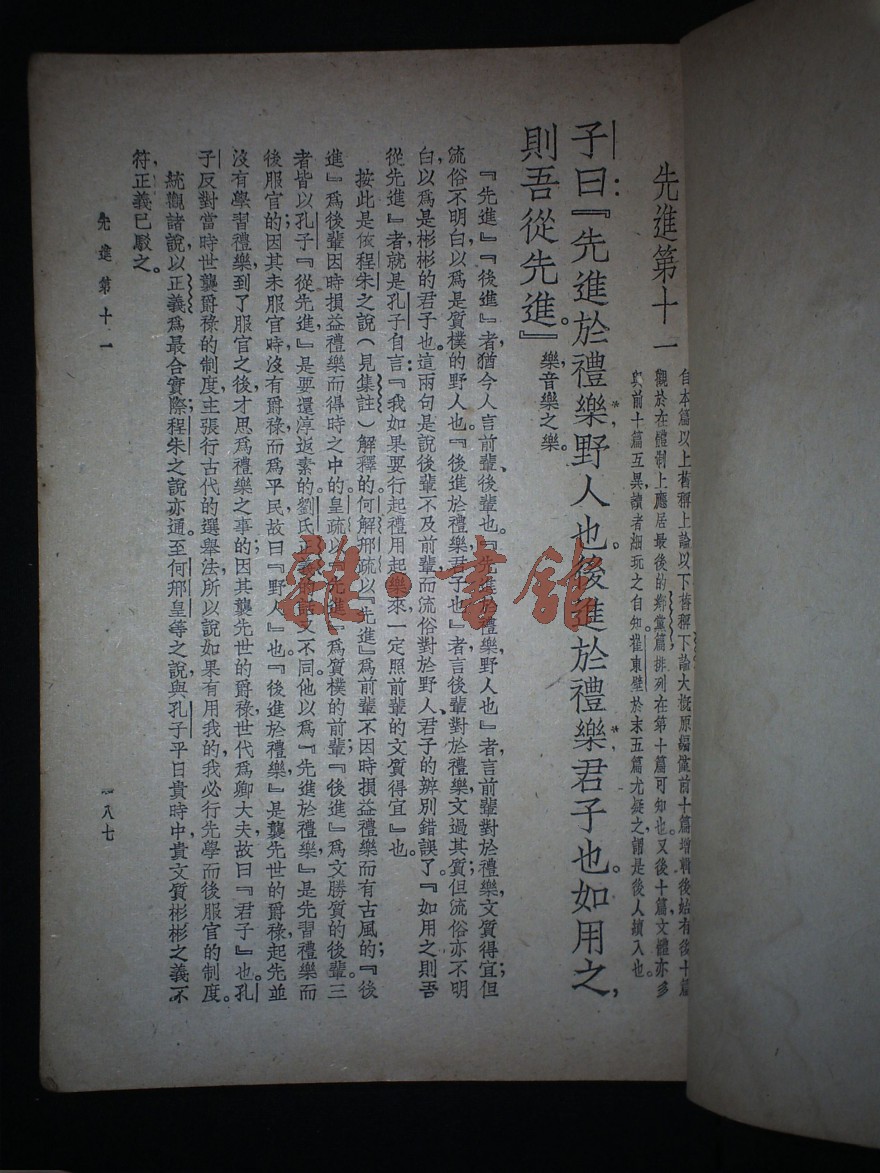 先進第十一
自本篇以上舊稱上論，以下舊稱下論，大概原編僅前十篇，增輯後始有後十篇。
觀於在體制上應居最後的鄉黨篇，排列在第十篇可知也。又後十篇文體亦多
與前十篇互異，讀者細玩之自知。崔東壁於末五篇尤疑之，謂是後人續入也。
子曰：『先進於禮樂，野人也。後進於禮樂，君子也。如用之，
則吾從先進。』樂，音樂之樂。
『先進』『後進』者，猶今人言前輩、後輩也。『先進於禮樂，野人也』者，言前輩對於禮樂，文質得宜；但
流俗不明白，以爲是質樸的野人也。『後進於禮樂，君子也』者，言後輩對於禮樂，文過其質；但流俗亦不明
白，以爲是彬彬的君子也。這兩句是說後輩不及前輩，而流俗對於野人、君子的辨別錯誤了。『如用之，則吾
從先進』者，就是孔子自言：『我如果要行起禮，用起樂來，一定照前輩的文質得宜』也。
按此是依程朱之說（見集註）解釋的。何解邢疏以『先進』爲前輩，不因時損益禮樂而有古風的；『後
進』爲後輩，因時損益禮樂而得時之中的。皇疏以『先進』爲質樸的前輩；『後進』爲文勝質的後輩。三
者皆以孔子『從先進』是要還淳返素的。劉氏正義的話又不同。他以爲『先進於禮樂』是先習禮樂而
後服官的；因其未服官時沒有爵祿而爲平民，故曰『野人』也。『後進於禮樂』是襲先世的爵祿，起先並
沒有學習禮樂，到了服官之後，才思爲禮樂之事的；因其襲先世的爵祿，世代爲卿大夫，故曰『君子』也。孔
子反對當時世襲爵祿的制度，主張行古代的選舉法，所以說如果有用我的，我必行先學而後服官的制度。
統觀諸說，以正義爲最合實際；程朱之說亦通。至何邢皇等之說，與孔子平日貴時中，貴文質彬彬之義不
符，正義已駁之。
先進第十一
一八七
雜·書館